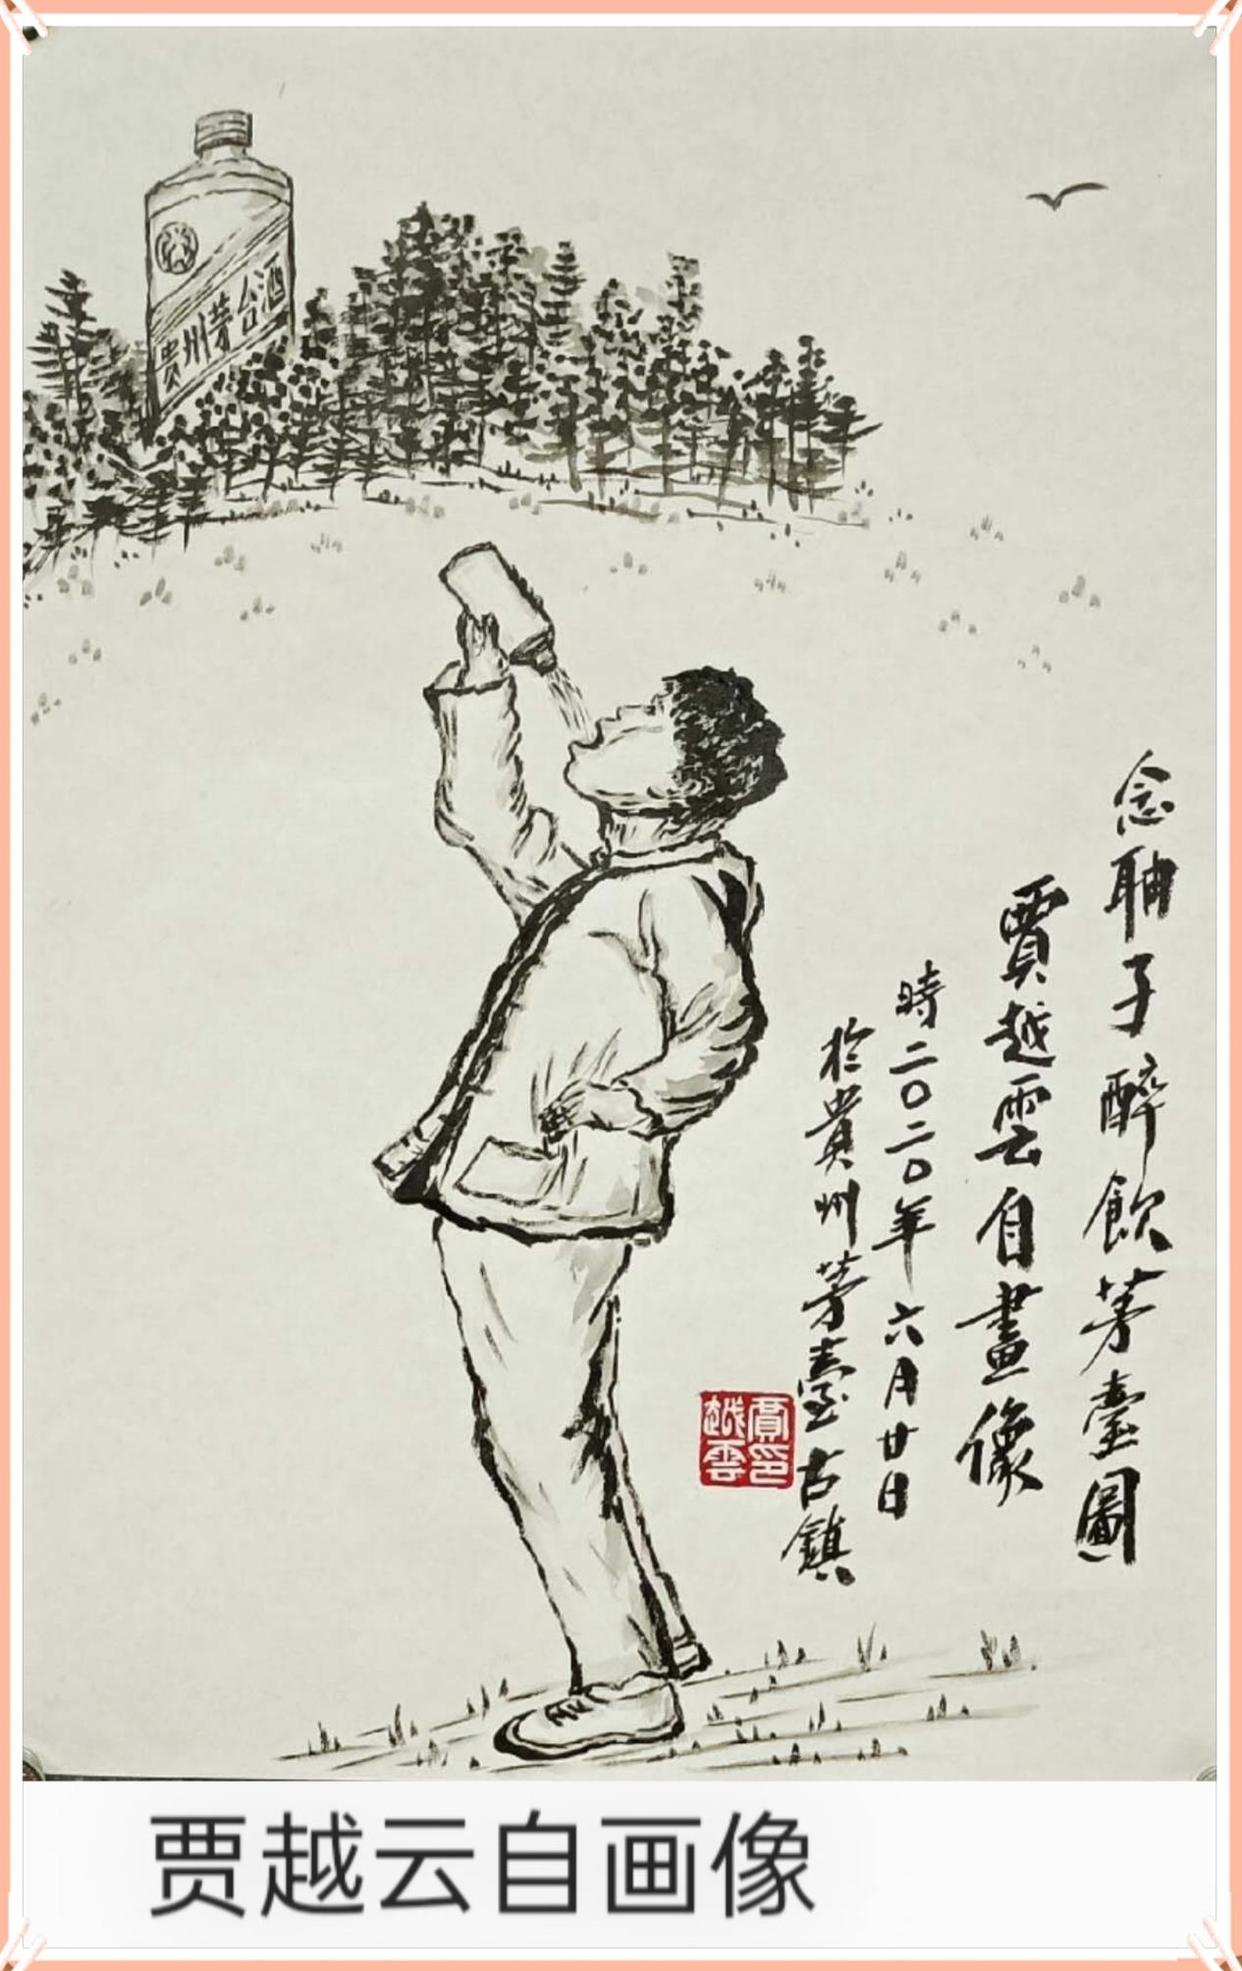 贵州茅台酒
念聃子醉飲茅臺圖
賈越雲自畫像
時二〇二〇年六月廿日
於貴州茅臺古鎮
賈印越雲
贾越云自画像